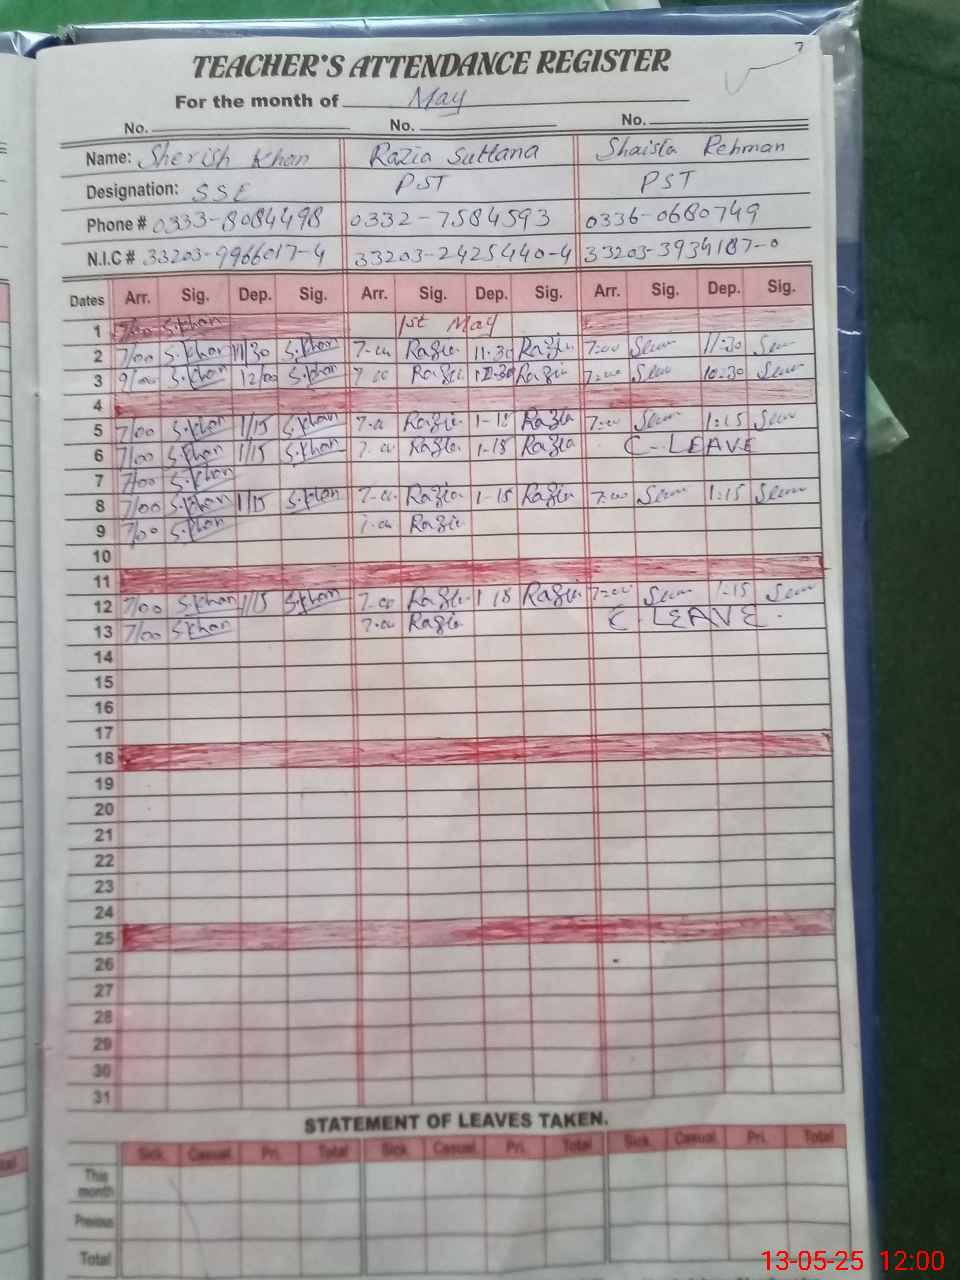 TEACHER'S ATTENDANCE REGISTER
For the month of May
No. No. No.
Name: Sherish Khan Razia Sultana Shaista Rehman
Designation: SSE PST PST
Phone # 0333-8084498 0332-7584593 0336-0680749
N.I.C # 33203-9966017-4 33203-2425440-4 33203-3934187-0
Dates Arr. Sig. Dep. Sig. Arr. Sig. Dep. Sig. Arr. Sig. Dep. Sig.
1 7/00 S.Khan 1st May
2 7/00 S.Khan 11/30 S.Khan 7-00 Razia 11:30 Razia 7:00 11:30
3 9/00 S.Khan 12/00 S.Khan 7 00 Razia Razia 7:00 10:30
4
5 7/00 S.Khan 1/15 S.Khan 7-00 Razia 1-15 Razia 7:00 1:15
6 7/00 S.Khan 1/15 S.Khan 7-00 Razia 1-15 Razia C-LEAVE
7 7/00 S.Khan
8 7/00 S.Khan 1/15 S.Khan 7-00 Razia 1-15 Razia 7:00 1:15
9 7/00 S.Khan 7-00 Razia
10
11
12 7/00 S.Khan 1/15 S.Khan 7-00 Razia 1 15 Razia 7:00 1-15
13 7/00 S.Khan 7-00 Razia C. LEAVE.
14
15
16
17
18
19
20
21
22
23
24
25
26
27
28
29
30
31
STATEMENT OF LEAVES TAKEN.
Sick. Casual. Pri. Total Sick. Casual. Pri. Total Sick. Casual. Pri. Total
This month
Previous
Total
13-05-25 12:00